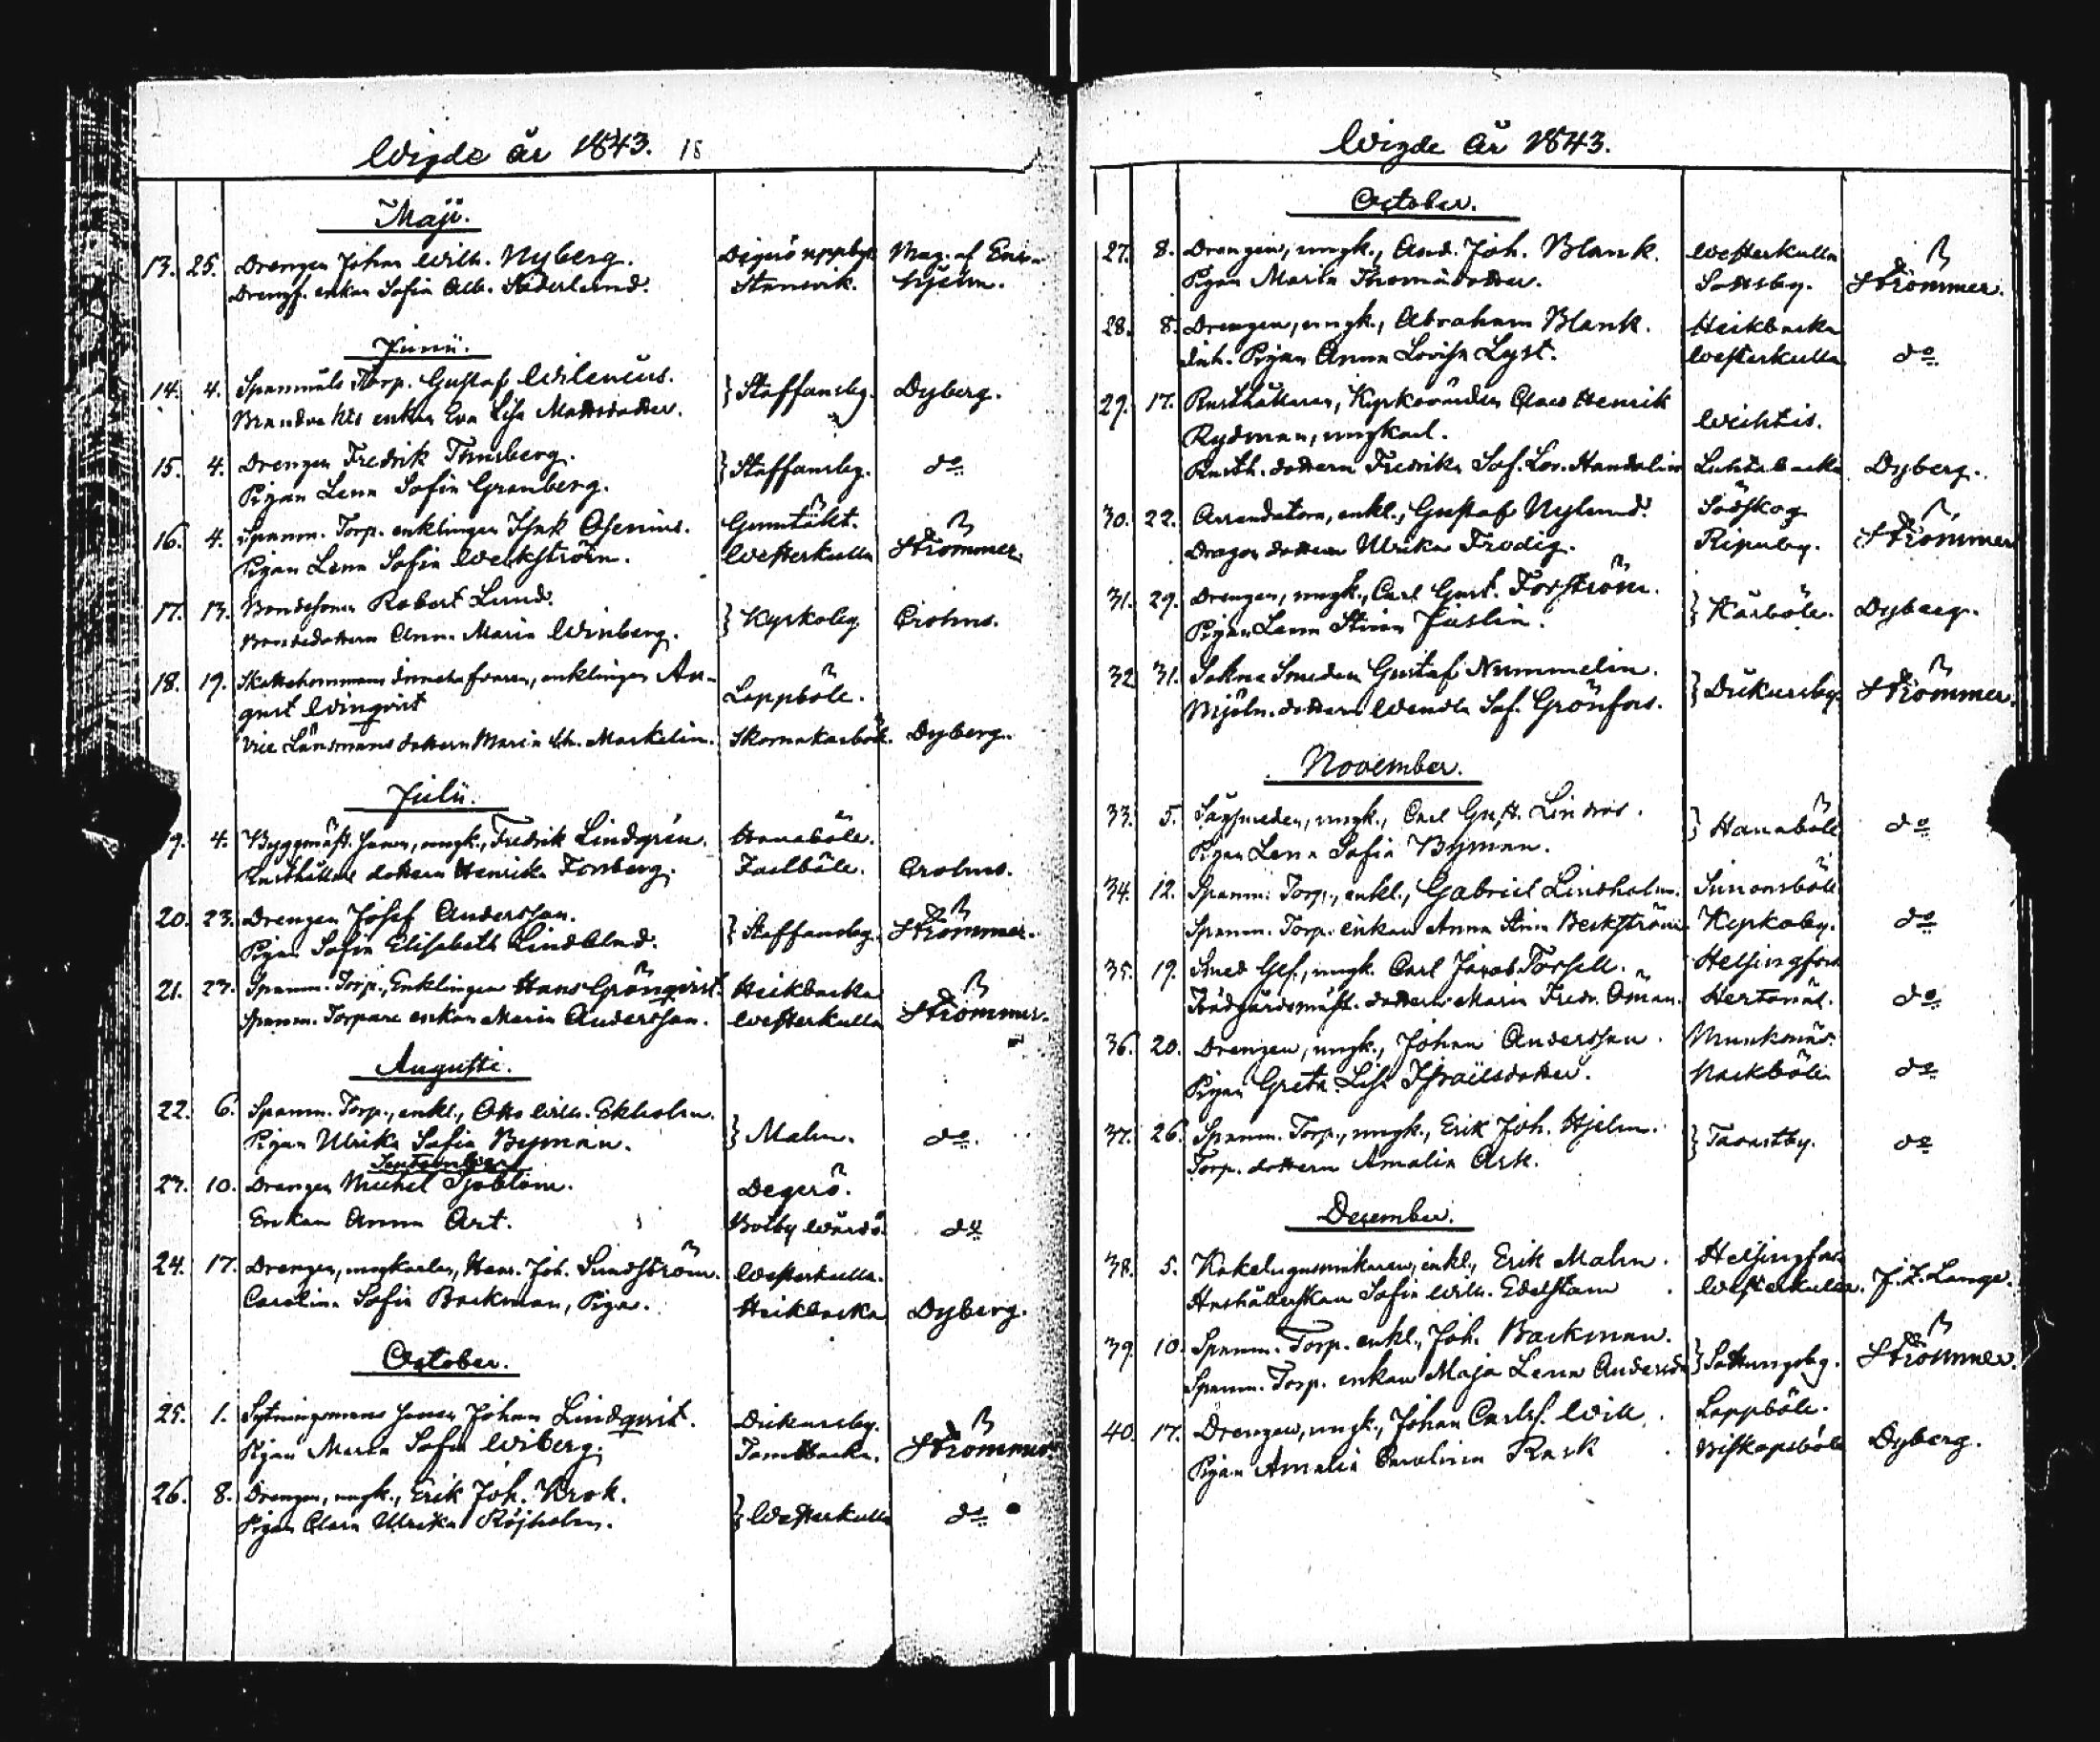 Wigde år 1843. 18
Maji.
13. 25. Drengen Johan Wilh. Nyberg. Degerö uppby Mag. af
Drengs. enkan Sofia Alb. Söderlund. Stansvik. Hjelm.
Junii.
14. 4. Spanmåls Torp. Gustaf Wilenius. } Staffansby. Dyberg.
enkan Eva Lisa Mattsdotter.
15. 4. Drengen Fredrik Tunsberg. } Staffansby. do
Pigan Lena Sofia Granberg.
16. 4. Spanm. Torp. enklingen Isak Osenius. Gumtäkt. Strömmer.
Pigan Lena Sofia Weckström. Westerkulla
17. 13. Bondesonen Robert Lund. } Kyrkoby Crohns.
Bondedottern Anna Maria Winberg.
18. 19. Skattehemmans innehafvaren, enklingen Au-
gust Winqvist Lappböle.
Vice Länsmans dottern Maria Ch. Markelin. Skomakarböle. Dyberg.
Julii.
19. 4. Byggmäst. sonen, ungk., Fredrik Lindgrén. Hanaböle.
Rusthållare dottern Henrika Forsberg. Fastböle. Crohns.
20. 23. Drengen Josef Andersson. } Staffansby. Strömmer.
Pigan Sofia Elisabeth Lindblad.
21. 23. Spanm. Torp., Enklingen Hans Grönqvist. Heikbacka
Spanm. Torpare enkan Maria Andersson. Westerkulla Strömmer.
Augusti.
22. 6. Spanm. Torp., enkl., Otto Wilh. Ekholm. } Malm. do.
Pigan Ulrika Sofia Byman.
September
23. 10. Drengen Michel Sjöblom. Degerö.
Enkan Anna Art. Botby Wårdö. do
24. 17. Drengen, ungkarlen, Henr. Joh. Sundström. Westerkulla.
Carolina Sofia Backman, Piga. Heikbacka Dyberg.
October.
25. 1. Sytningsmans sonen Johan Lindqvist. Dickursby. Strömmer
Pigan Maria Sofia Wiberg. Tomtbacka.
26. 8. Drengen, ungk., Erik Joh. Krok. } Westerkulla do
Pigan Clara Ulrika Röjholm.
Wigde år 1843.
October.
27. 8. Drengen, ungk., And. Joh. Blank. Westerkulla
Pigan Maria Thomasdotter. Sottsby. Strömmer.
28. 8. Drengen, ungk., Abraham Blank. Heikbacka
Pigan Anna Lovisa Lyst. Westerkulla do
29. 17. Rusthållaren, Kyrkovärden Claes Henrik
Rydman, ungkarl. Wichtis.
Rusth. dottern Fredrika Sof. Lov. Handolin Luhtabacka Dyberg.
30. 22. Arrendatorn, enkl., Gustaf Nylund. Södskog
Dragon dottern Ulrika Frodig. Ripuby. Strömmer
31. 29. Drengen, ungk., Carl Gust. Forström. } Kårböle. Dyberg.
Pigan Lena Stina Juslin.
32. 31. Sokne Smeden Gustaf Nummelin. } Dickursby. Strömmer.
Mjöln. dottern Wendla Sof. Grönfors.
November.
33. 5. Sågsmeden, ungk., Carl Gust. Lindros. } Hanaböle do
Pigan Lena Sofia Byman.
34. 12. Spanm. Torp., enkl., Gabriel Lindholm. Simonsböle
Spanm. Torp. enkan Anna Stina Beckström. Kyrkoby. do
35. 19. Smed Ges., ungk. Carl Jacob Forsell. Helsingfors
Trädgårdsmäst. dottern Maria Fredr. Öman. Hertonäs. do
36. 20. Drengen, ungk., Johan Andersson. Munksnäs.
Pigan Greta Lisa Israelsdotter. Nackböle do
37. 26. Spanm. Torp., ungk., Erik Joh. Hjelm. } Tavastby. do
Torp. dottern Amalia Ark.
December.
38. 5. Kakelugnsmakaren, enkl., Erik Malm. Helsingfors
Hushållerskan Sofia Wilh. Edelstam Westerkulla. J. Z. Lange.
39. 10. Spanm. Torp. enkl., Joh. Backman. } Sottungsby. Strömmer.
Spanm. Torp. enkan Maja Lena Andersd.
40. 17. Drengen, ungk., Johan Carlss. Wik. Lappböle.
Pigan Amalia Carolina Rask Biskopsböle Dyberg.